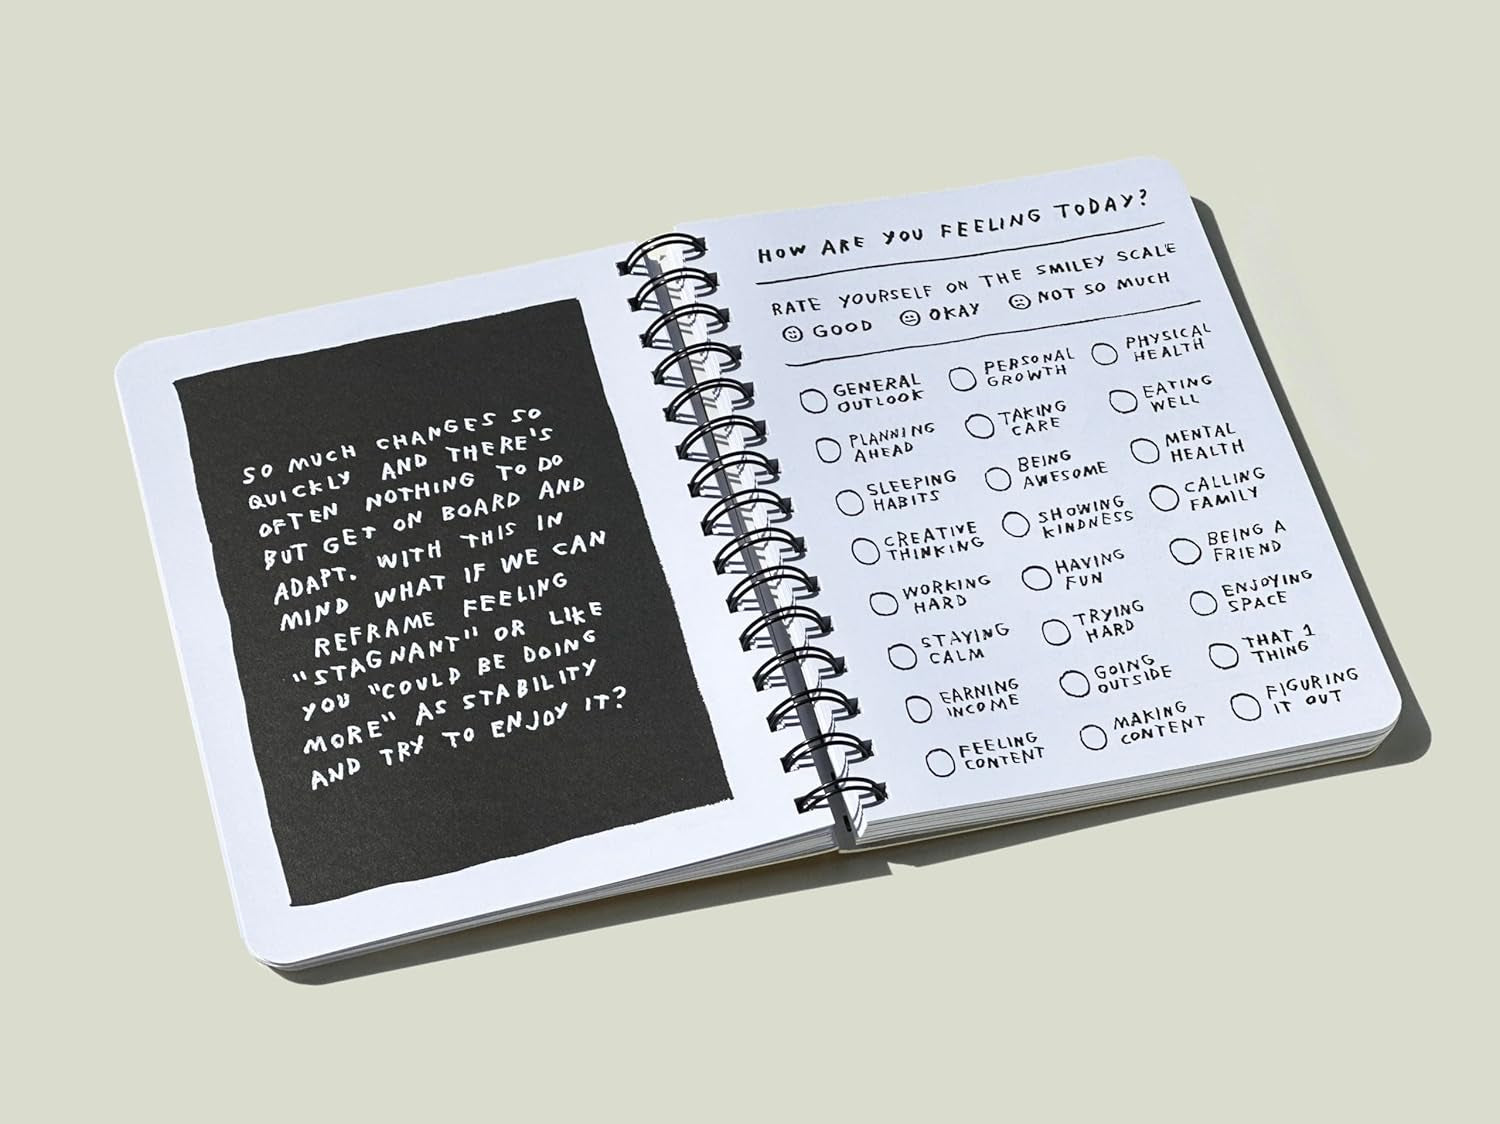 SO MUCH CHANGES SO
QUICKLY AND THERE'S
OFTEN NOTHING TO DO
BUT GET ON BOARD AND
ADAPT. WITH THIS IN
MIND WHAT IF WE CAN
REFRAME FEELING
"STAGNANT" OR LIKE
YOU "COULD BE DOING
MORE" AS STABILITY
AND TRY TO ENJOY IT?
HOW ARE YOU FEELING TODAY?
RATE YOURSELF ON THE SMILEY SCALE
GOOD OKAY NOT SO MUCH
GENERAL
OUTLOOK
PERSONAL
GROWTH
PHYSICAL
HEALTH
PLANNING
AHEAD
TAKING
CARE
EATING
WELL
SLEEPING
HABITS
BEING
AWESOME
MENTAL
HEALTH
CREATIVE
THINKING
SHOWING
KINDNESS
CALLING
FAMILY
WORKING
HARD
HAVING
FUN
BEING A
FRIEND
STAYING
CALM
TRYING
HARD
ENJOYING
SPACE
EARNING
INCOME
GOING
OUTSIDE
THAT 1
THING
FEELING
CONTENT
MAKING
CONTENT
FIGURING
IT OUT